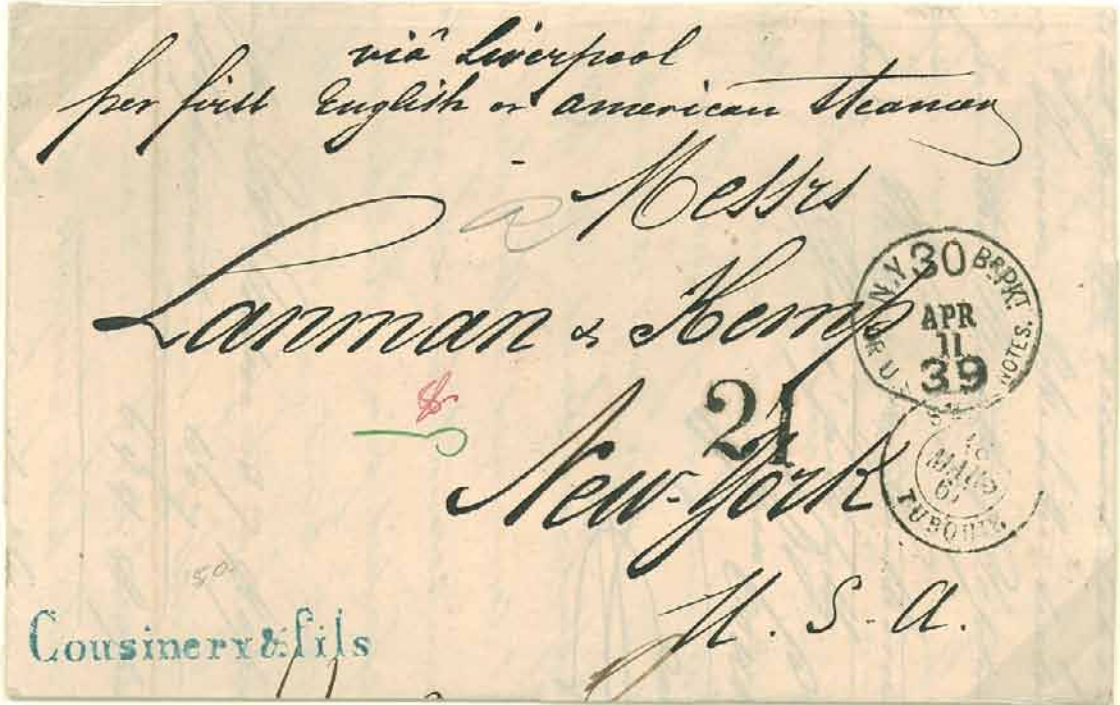 viâ Liverpool
per first English or american steamer
Messrs
Lanman & Kemp
New-York
U. S. A.
N.Y. 30 BR.PKT.
APR
11
39
OR U NOTES.
21
18
MARS
TURQUIE
50
Cousinery & fils